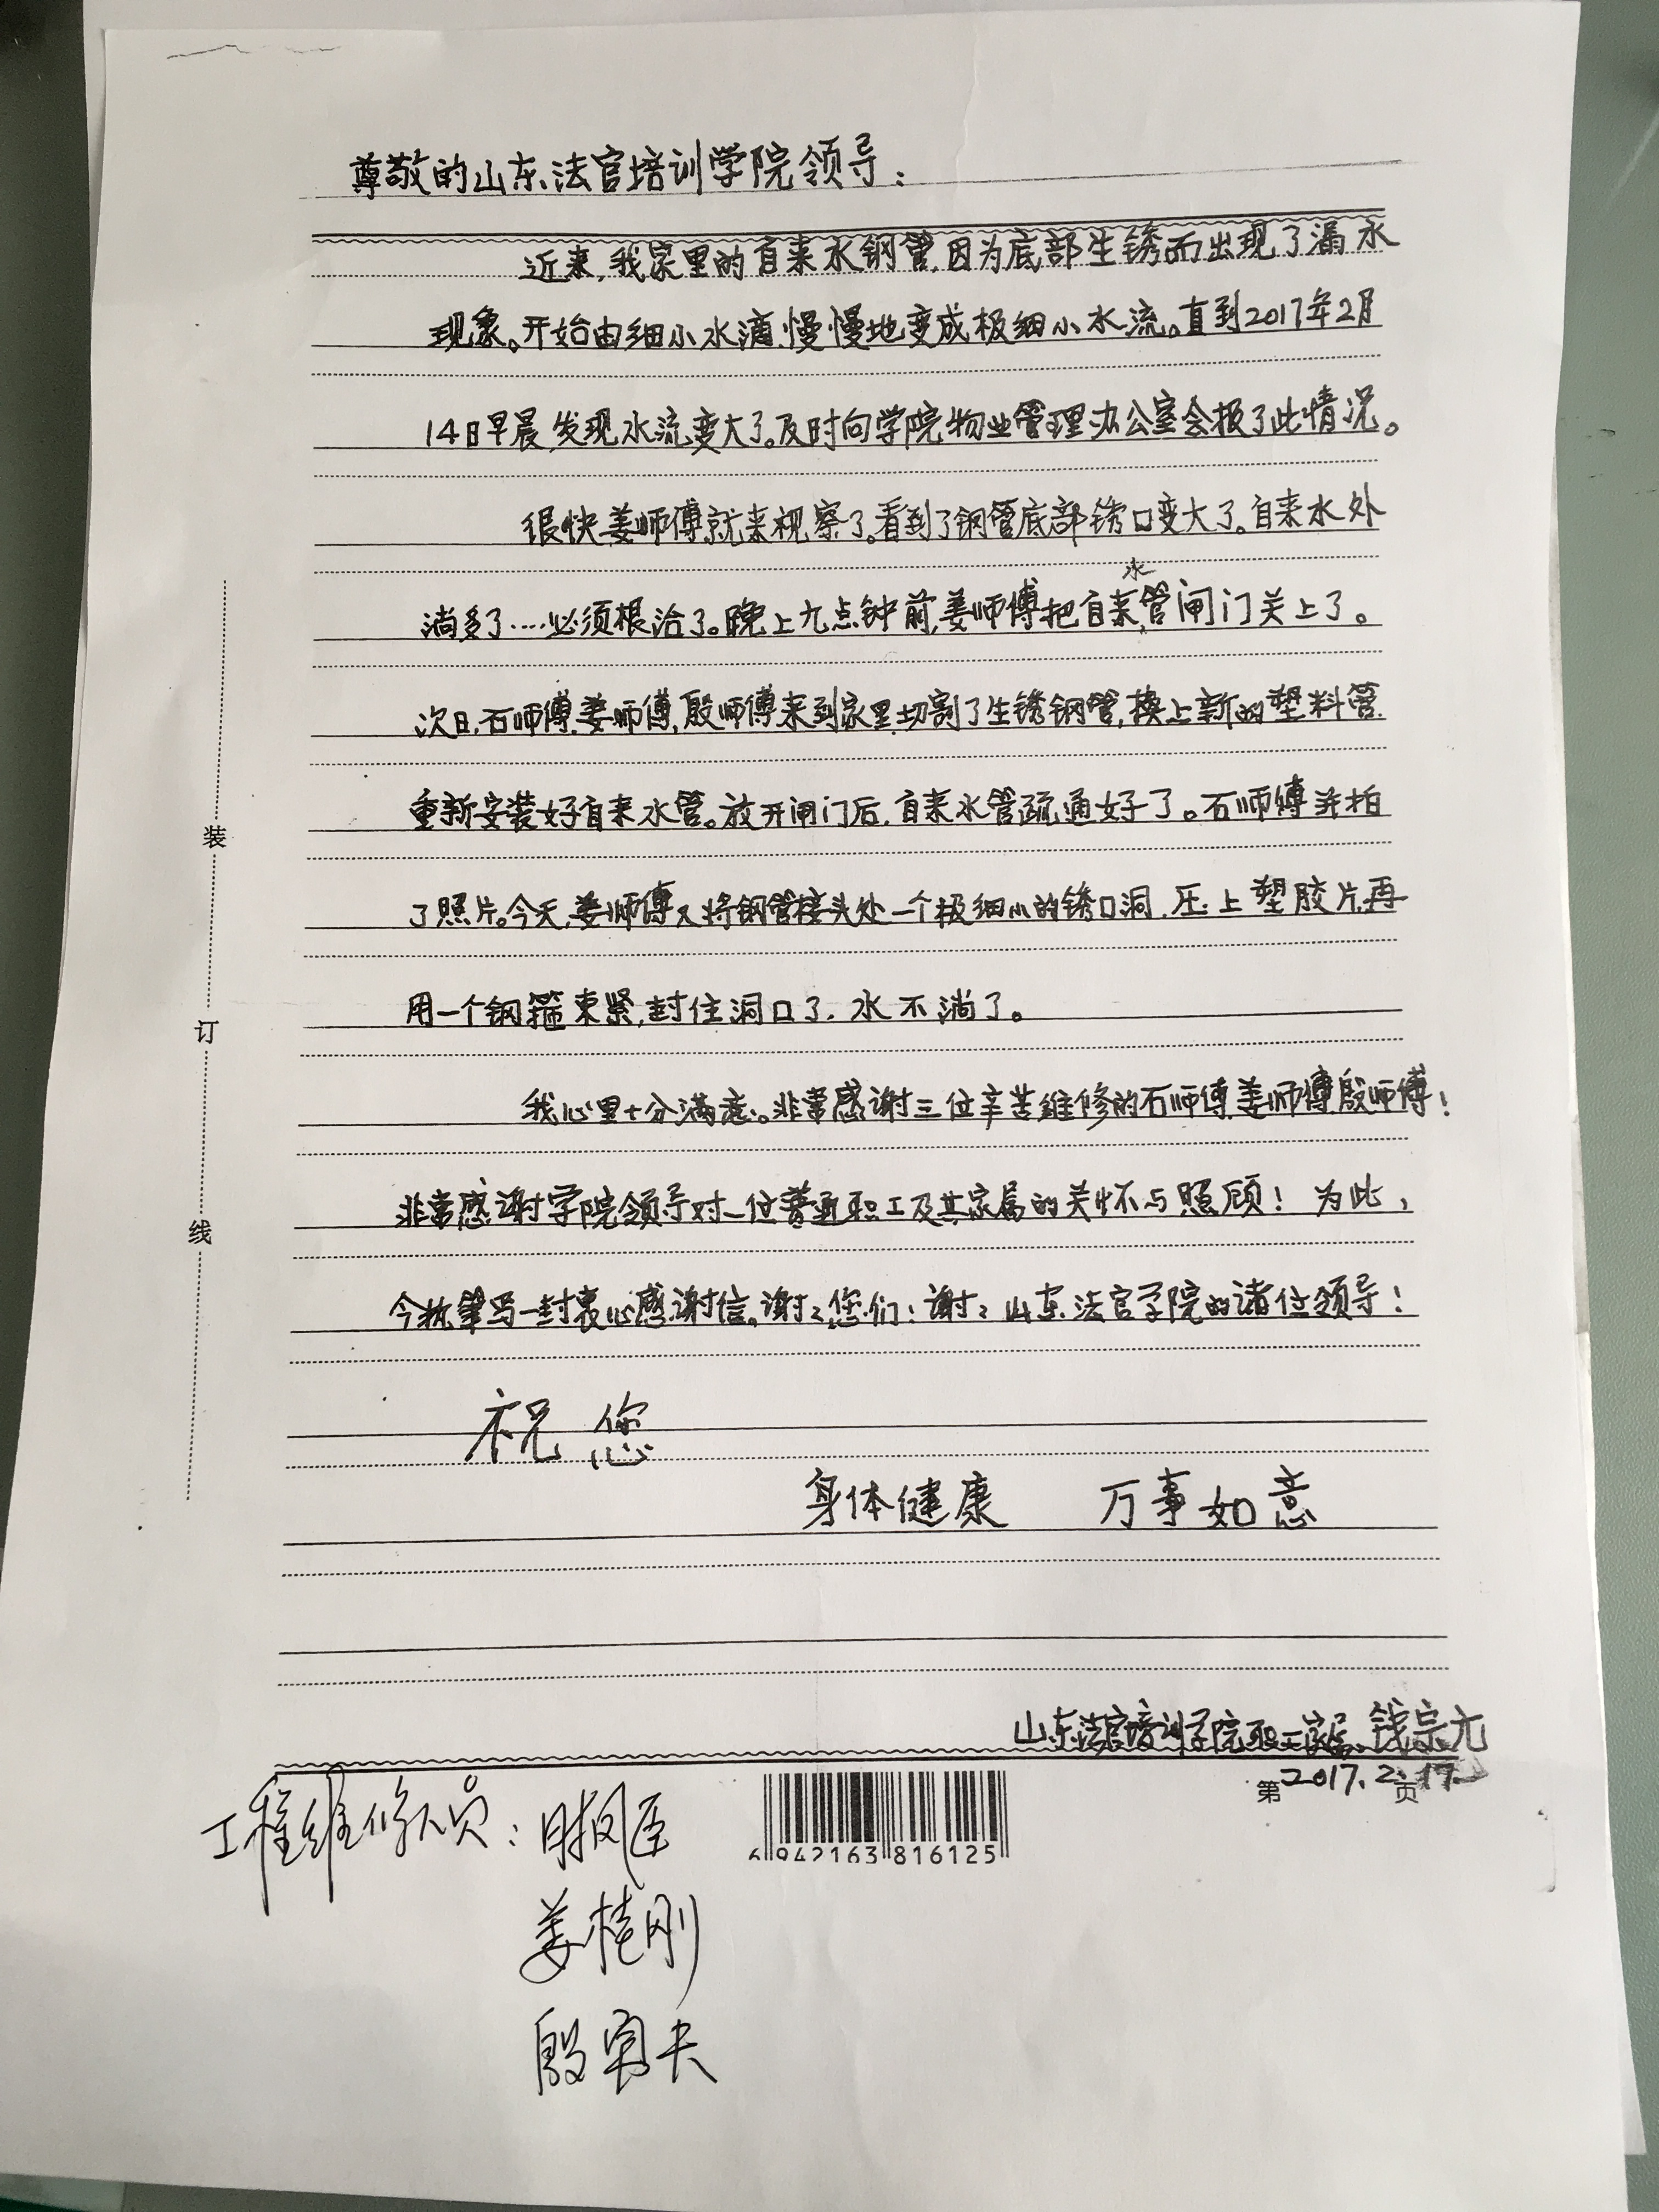 尊敬的山东法官培训学院领导：
近来,我家里的自来水钢管,因为底部生锈而出现了漏水
现象。开始由细小水滴,慢慢地变成极细小水流。直到2017年2月
14日早晨,发现水流变大了。及时向学院物业管理办公室会报了此情况。
很快姜师傅就来视察了。看到了钢管底部锈口变大了。自来水处
淌多了……必须根治了。晚上九点钟前,姜师傅把自来水管闸门关上了。
次日,石师傅.姜师傅,殷师傅来到家里切割了生锈钢管,换上新的塑料管.
重新安装好自来水管。放开闸门后,自来水管疏通好了。石师傅并拍
了照片。今天,姜师傅又将钢管接头处一个极细小的锈口洞,压上塑胶片,再
用一个钢箍束紧,封住洞口了.水不淌了。
我心里十分满意。非常感谢三位辛苦维修的石师傅姜师傅殷师傅!
非常感谢学院领导对一位普通职工及其家属的关怀与照顾!为此,
今执笔写一封衷心感谢信。谢々您们!谢々山东法官学院的诸位领导!
祝您
身体健康 万事如意
山东法官培训学院职工家属.钱宗元
第 页
2017.2.17.
工程维修人员：
6 942163 816125
姜桂刚
殷
装
订
线